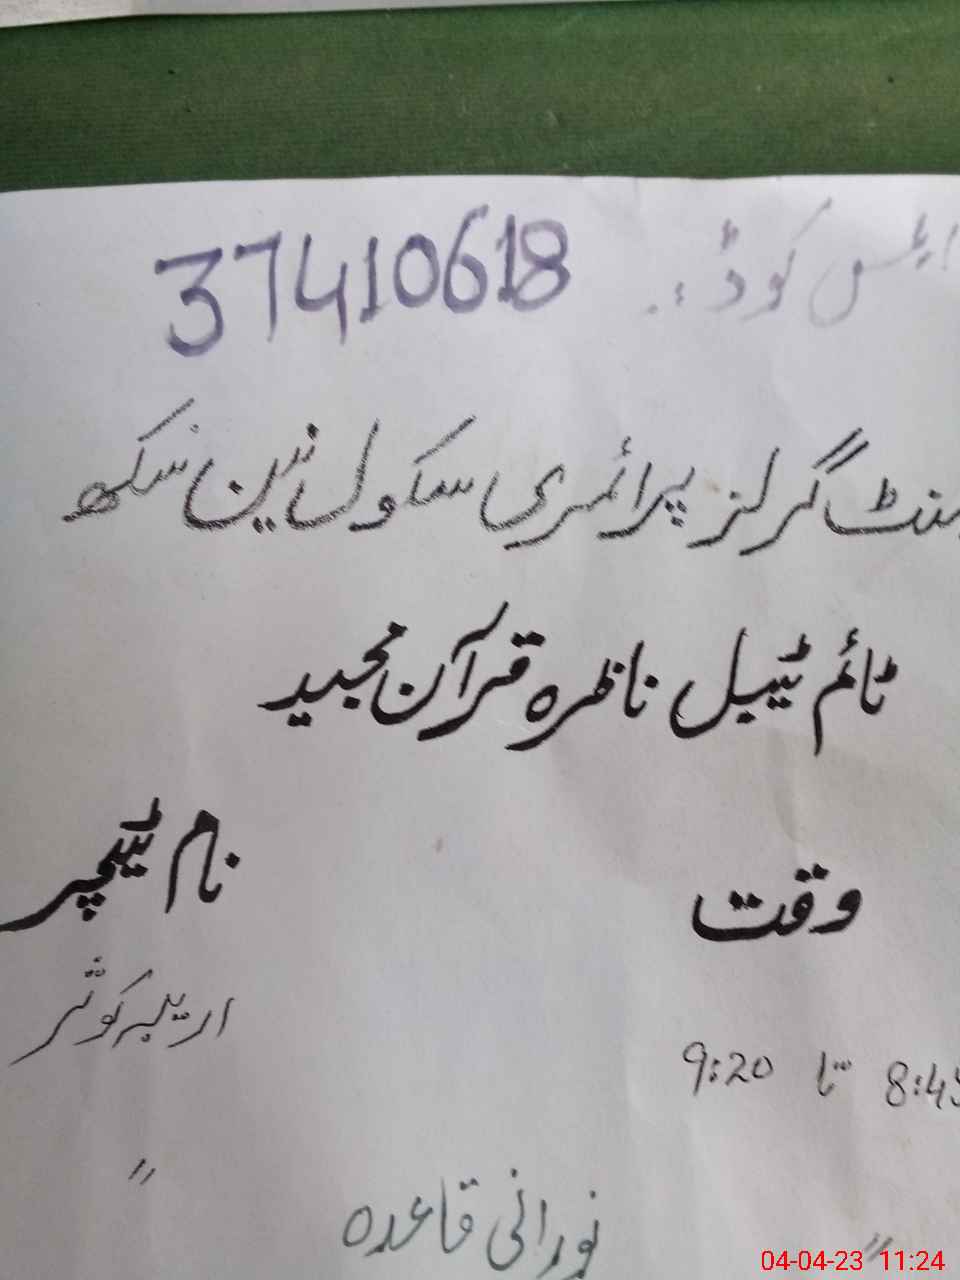 ایمس کوڈ :. 37410618
منٹ گرلز پرائمری سکول نین سکھ
ٹائم ٹیبل ناظرہ قرآن مجید
وقت نام ٹیچر
8:45 تا 9:20 اریبہ کوثر
" نورانی قاعدہ "
04-04-23 11:24